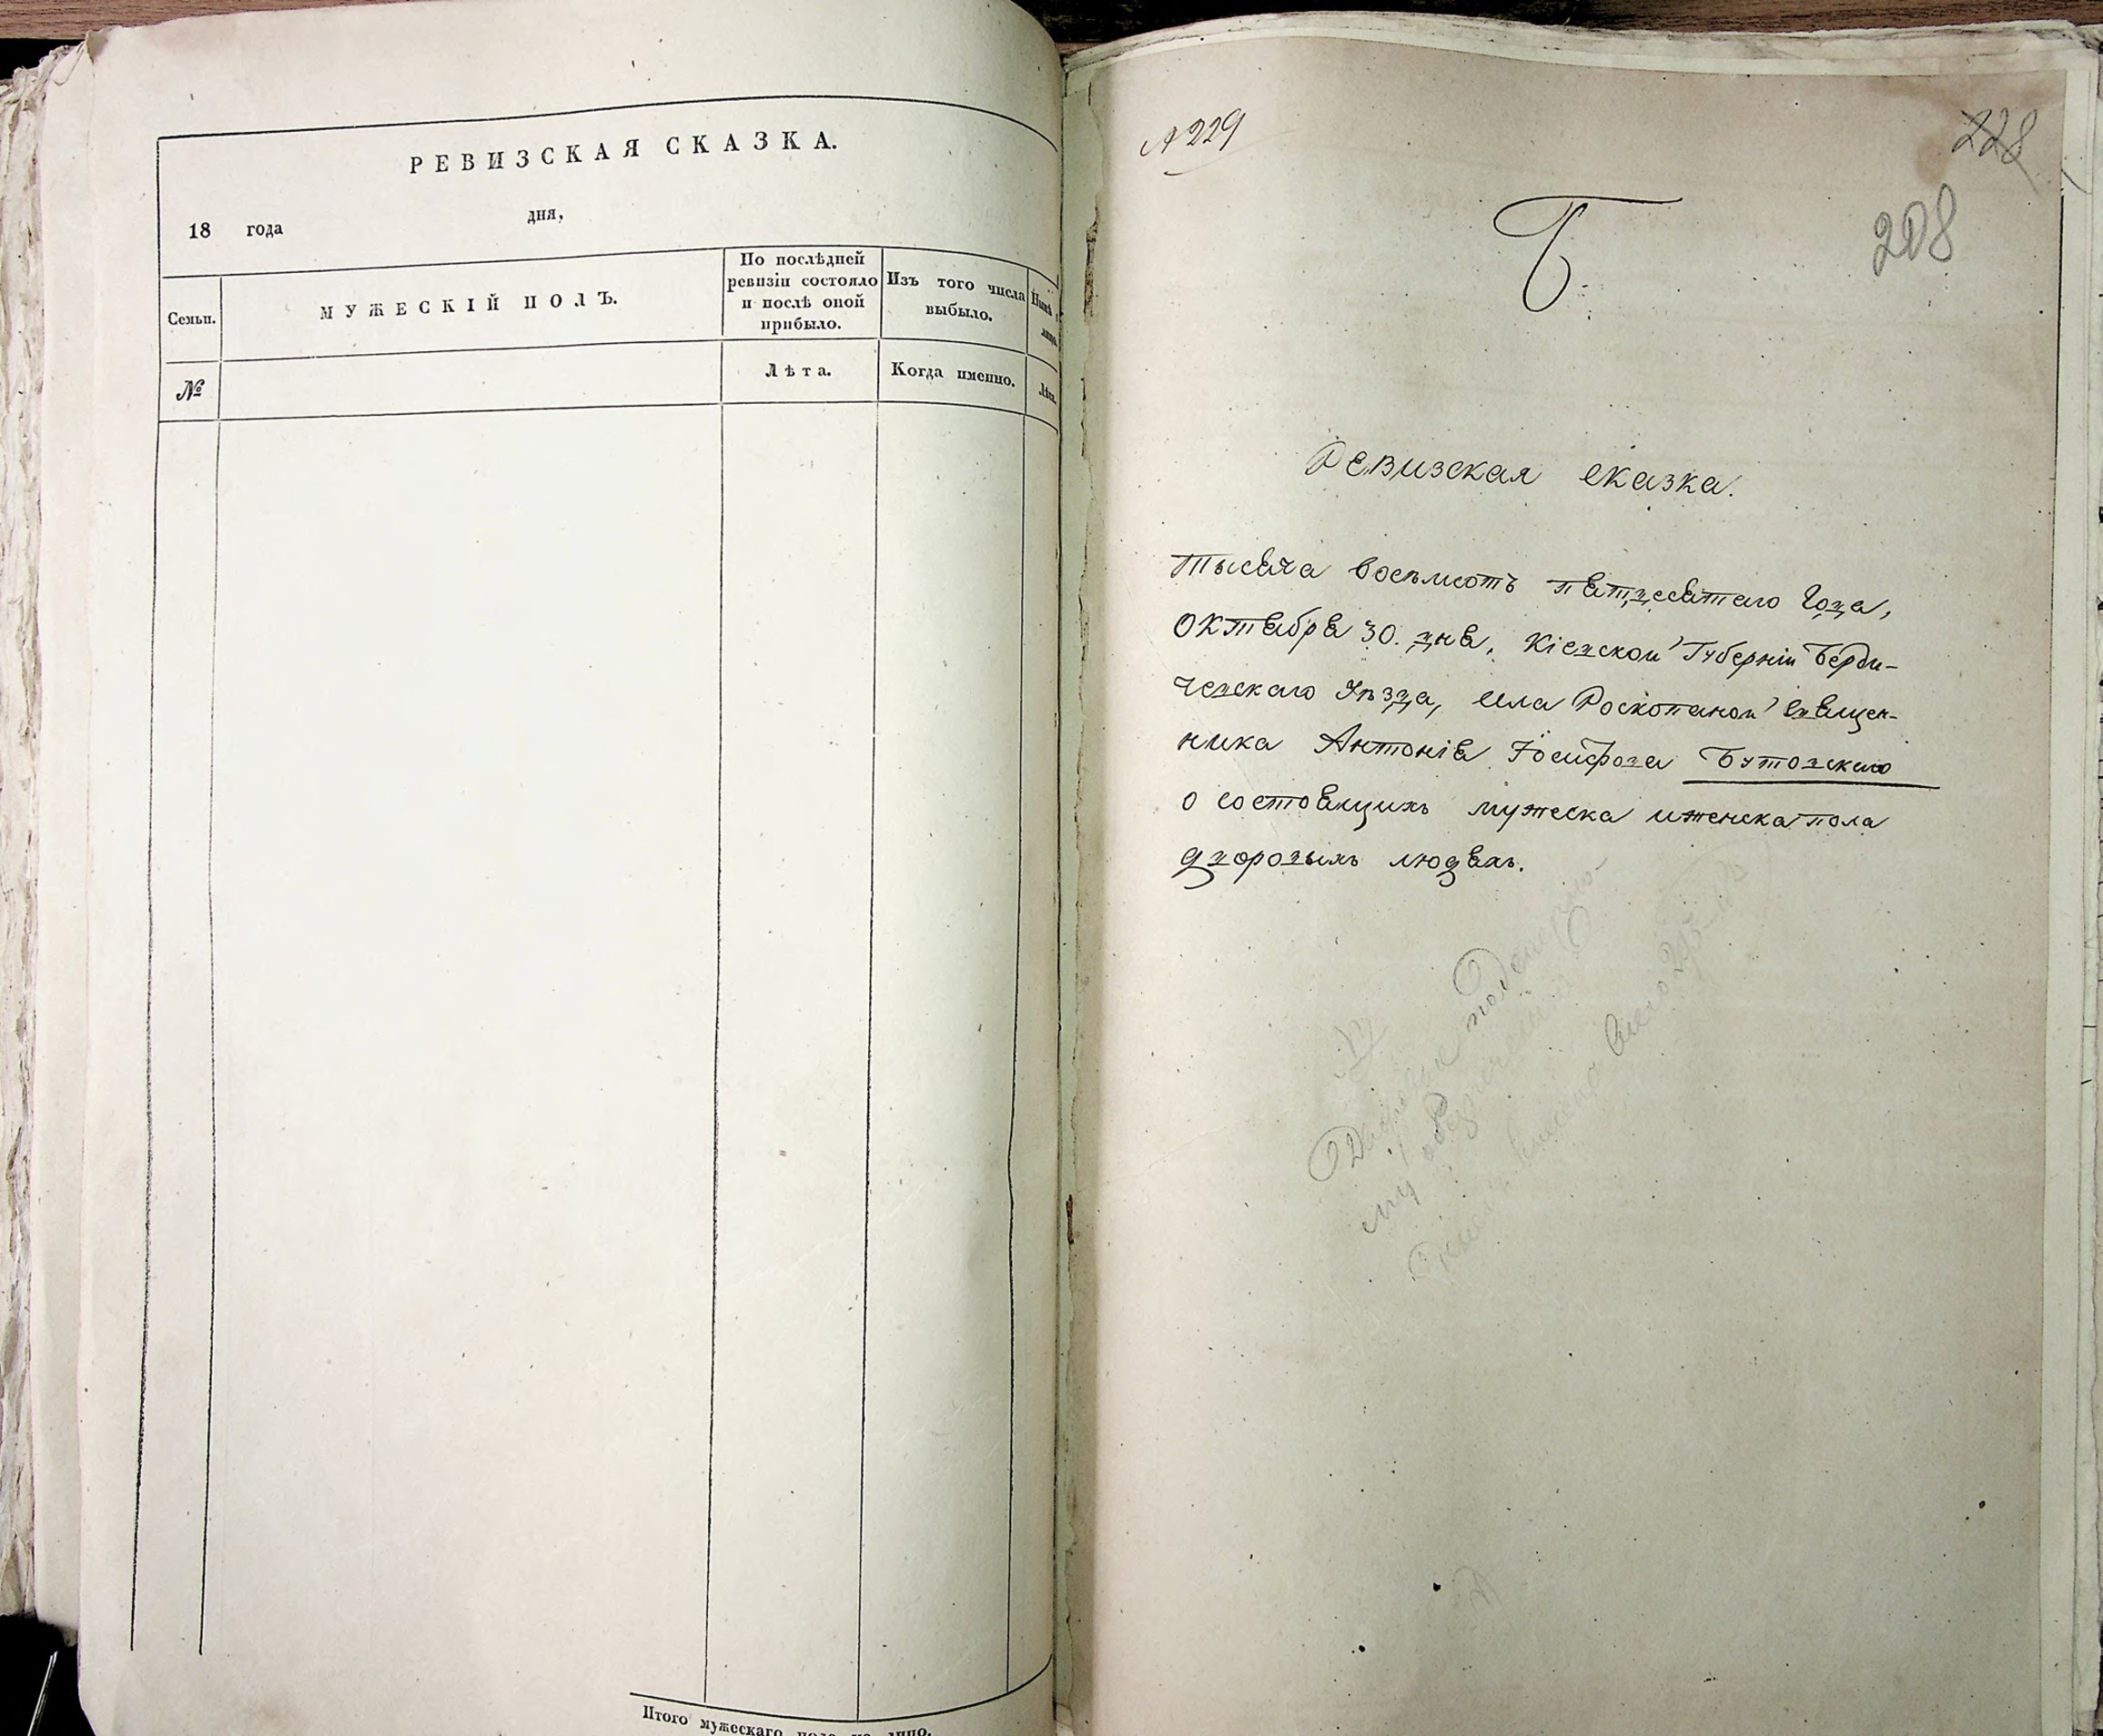 РЕВИЗСКАЯ СКАЗКА.
18 года дня,
Семьи.
МУЖЕСКІЙ ПОЛЪ.
По послѣдней
ревизіи состояло
и послѣ оной
прибыло.
Изъ того числа
выбыло.
№
Лѣта.
Когда именно.
Лѣта.
Итого мужескаго
229
228
208
Б
Ревизская сказка.
Тысяча восемсотъ пятдесятаго года,
Октября 30. дня, Кіевской Губерніи Берди-
чевскаго Уѣзда, села Роскопаной Священ-
ника Антонія Іосифова Бутовскаго
о состоящихъ мужеска и женска пола
дворовыхъ людяхъ.